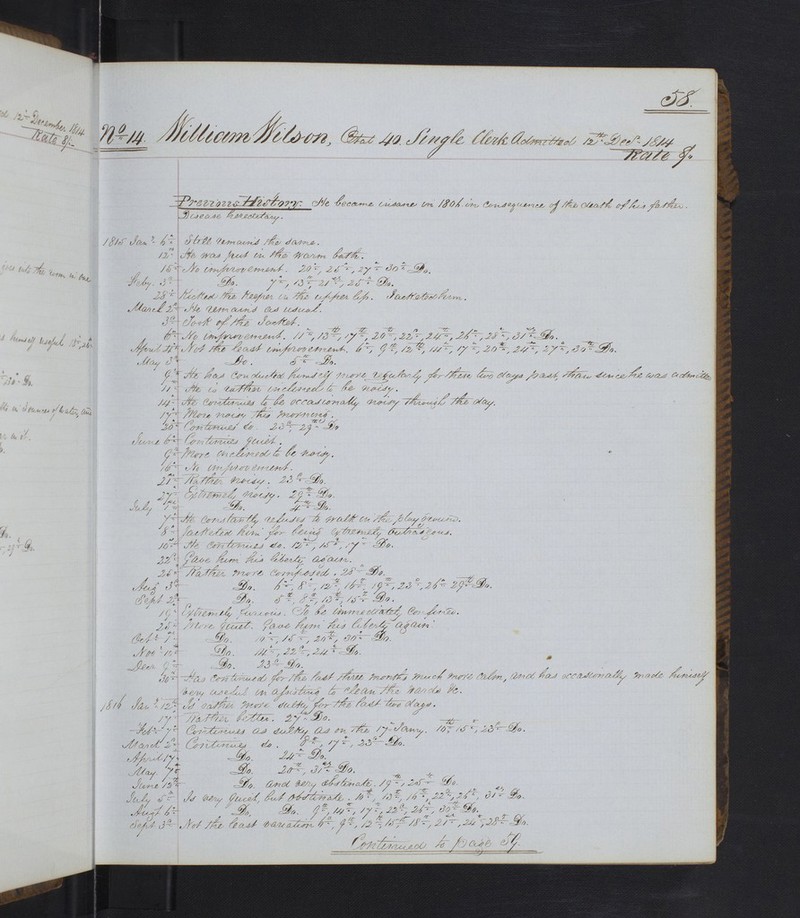 58.
No 14. William Wilson, Ætat 40. Single Clerk Admitted 12th Decr 1814
Rate 8/-
Previous History. He became insane in 1806 in consequence of the death of his father.
Disease hereditary.
1815 Jany 6th Still remains the same.
12th He was put in the warm bath.
16th No improvement. 20th, 25th, 27th 30th Do.
Feby. 3d Do. 7th, 13th, 21st, 25th Do.
28th Kicked the keeper in the upper lip. Jacketed him.
March 2d He remains as usual.
3d Took off the Jacket.
6th No improvement. 11th, 13th, 17th, 20th, 22d, 24th, 26th, 28th, 31st Do.
April 4th Not the least improvement, 6th, 9th, 12th, 14th, 17th, 20th, 24th, 27th, 30th Do.
May 2d Do. 5th Do.
9th He has conducted himself more regularly for these two days past, than since he was admitted
11th He is rather inclined to be noisy.
14th He continues to be occasionally noisy through the day.
17th More noisy this morning.
20th Continues so. 23d 29th Do
June 6th Continues quiet.
9th More inclined to be noisy.
16th No improvement.
21st Rather noisy. 23d Do.
27th Extremely noisy. 29th Do.
July 1st Do. 4th Do.
7th He constantly refuses to walk in the play ground.
8th Jacketed him for being extremely outrageous.
10th He continues so. 12th, 15th, 17th Do.
22d Gave him his liberty again.
25th Rather more composed. 28th Do.
Aug. 3d Do. 6th, 8th, 12th, 16th, 19th, 23d, 26th 29th Do.
Sept 2d Do. 5th, 8th, 13th, 15th Do.
19th Extremely furious. To be immediately confined.
25th More quiet. Gave him his liberty again
Octr 1st Do. 10th, 15th, 20th, 30th Do.
Novr 10th Do. 14th, 22d, 24th Do.
Decr 9th Do. 23d Do.
30th Has continued for the last three months much more calm, and has occasionally made himself
very useful in assisting to clean the wards &c.
1816 Jany 12th Is rather more sulky for the last two days.
17th Rather better. 27th Do.
Feby 7th Continues as sulky as on the 17th Jany. 10th 15th, 23d Do.
March 2d Continues so. 8th, 17th, 23d Do.
April 17th Do. 24th Do.
May 7th Do. 20th, 31st Do.
June 13th Do. and very obstinate, 19th, 25th Do.
July 5th Is very quiet, but obstinate. 10th, 13th, 16th, 22d, 26th, 31st Do.
Augt 6th Do. Do. 9th, 14th, 17th, 22d, 26th, 30th Do.
Sept 3d Not the least variation 6th, 9th, 12th 15th 18th, 21st, 24th, 28th Do.
Continued to page 59.